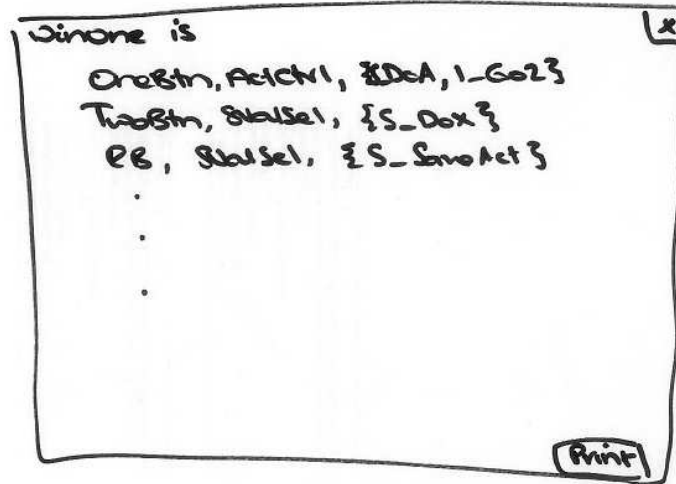 winOne is
x
OneBtn, ActCtrl, {SDoA, I_Go2}
TwoBtn, SValSel, {S_Dox}
RB, SValSel, {S_SomeAct}
.
.
.
Print